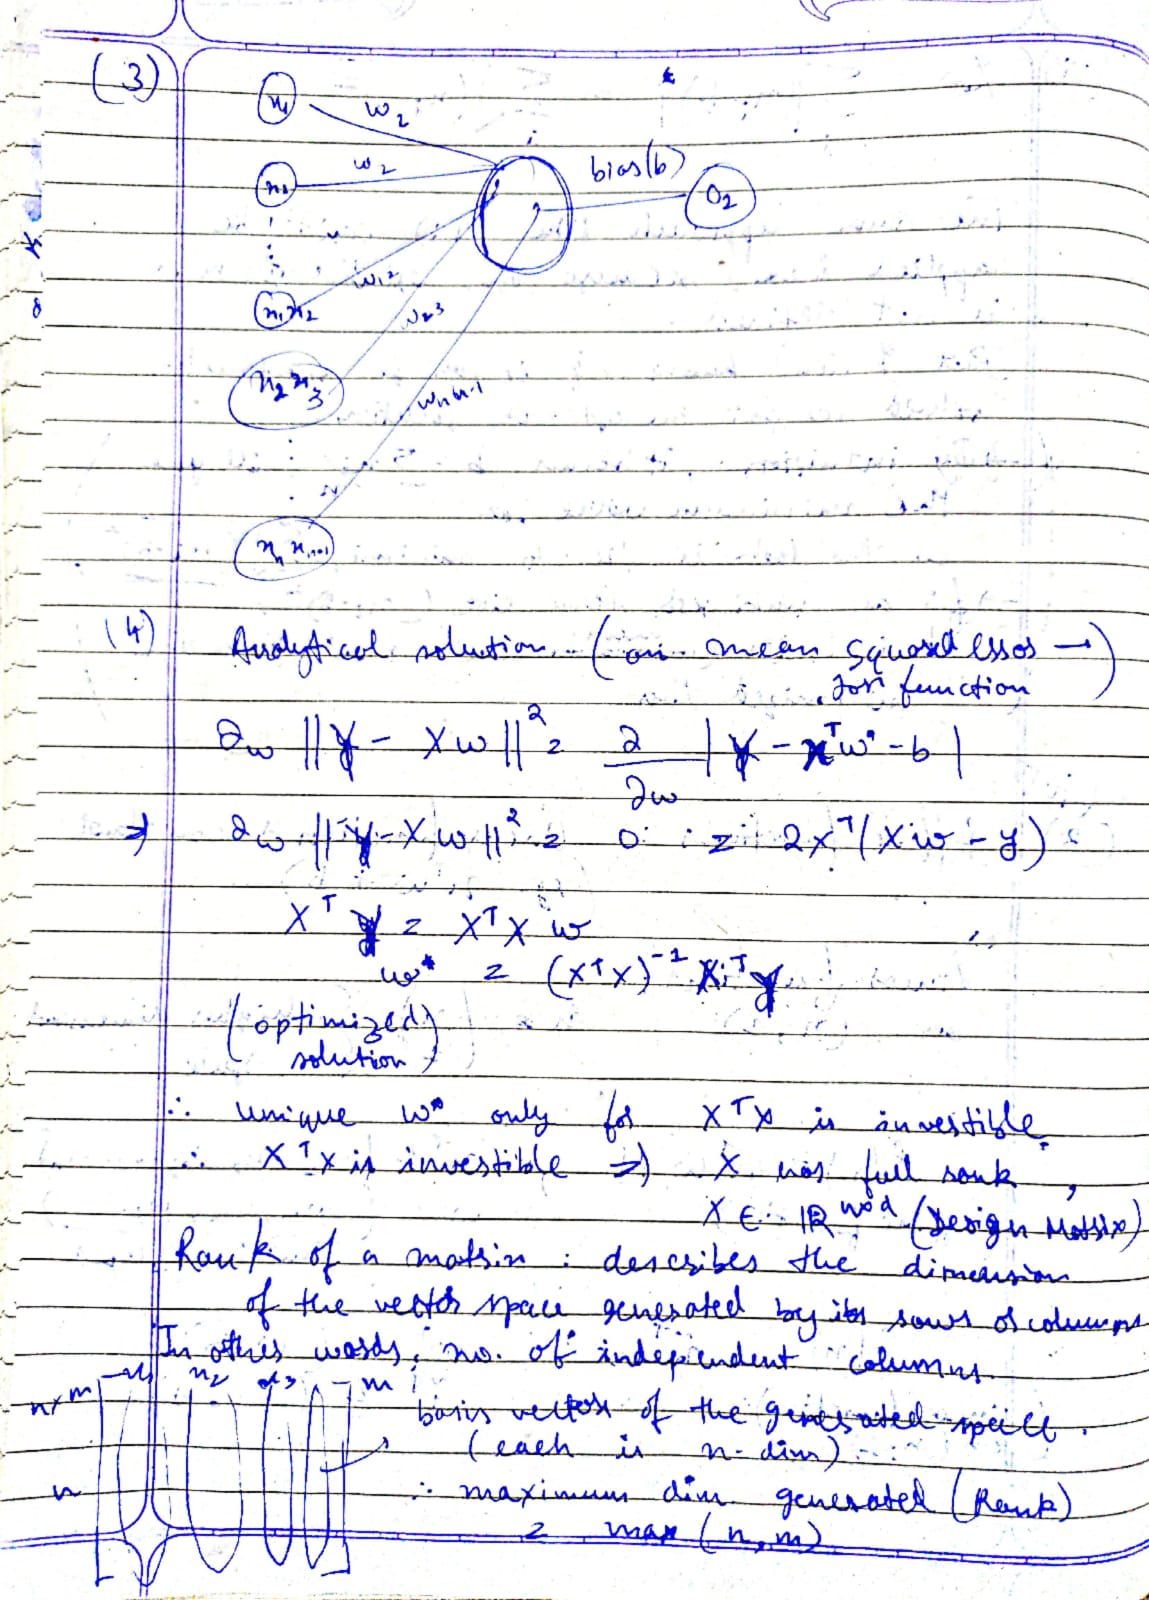 (3)
x₁ w₂
x₂ w₂ bias(b) O₂
x₁x₂ w₁₂
w₂₃
x₂x₃ wₙₙ₋₁
xₙ xₙ₊₁
(4) Analytical solution (on mean squared error →
for function)
∂w ||y - Xw||² = ∂/∂w |y - xᵀw* - b|
⇒ ∂w ||y - Xw||² = 0 = 2xᵀ(Xw - y)
Xᵀ y = XᵀX w
w* = (XᵀX)⁻¹ Xᵀ y
(optimized
solution)
∴ unique w* only for XᵀX is invertible.
∴ XᵀX is invertible ⇒ X has full rank,
X ∈ ℝⁿˣᵈ (Design Matrix)
Rank of a matrix : describes the dimension
of the vector space generated by its rows or columns
In other words, no. of independent columns.
n×m x₁ x₂ x₃ m
basis vector of the generated space.
(each is n-dim)
n ∴ maximum dim generated (Rank)
= max (n, m)